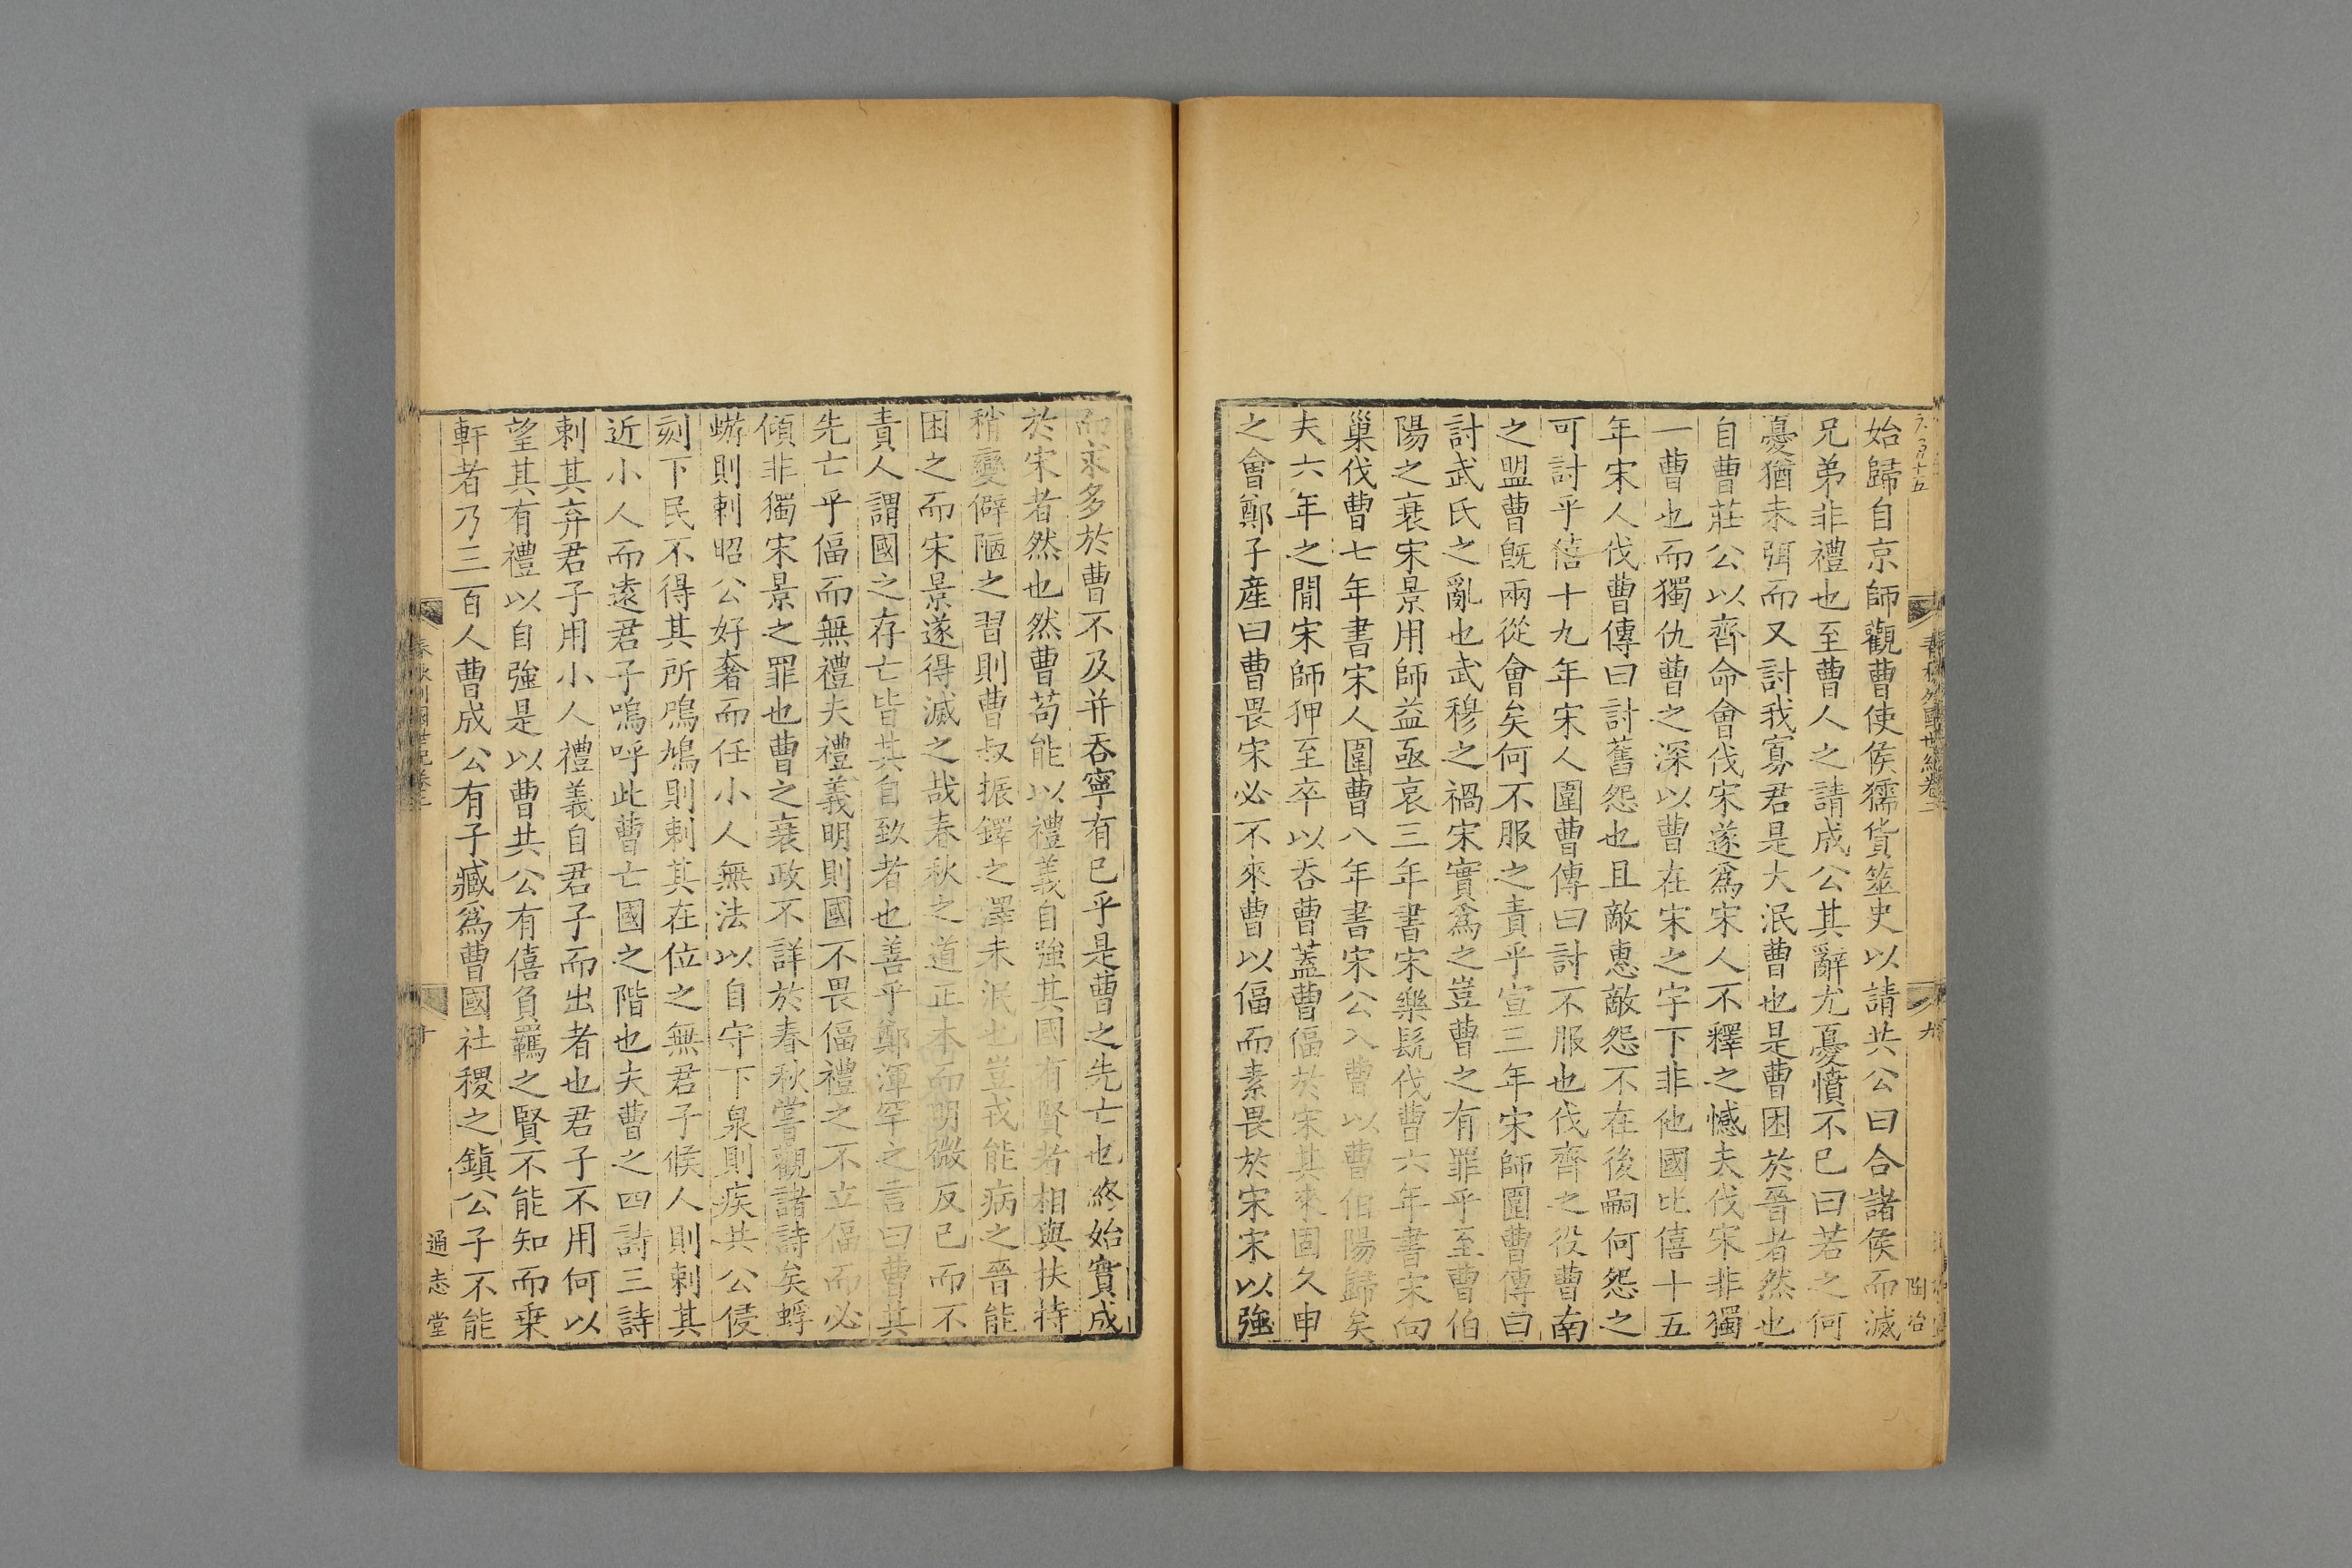 始歸自京師觀曹使侯獳貨筮史以請共公曰合諸侯而滅
兄弟非禮也至曹人之請成公其辭尤憂憤不已曰若之何
憂猶未弭而又討我寡君是大泯曹也是曹困於晉者然也
自曹莊公以齊命會伐宋遂爲宋人不釋之憾夫伐宋非獨
一曹也而獨仇曹之深以曹在宋之宇下非他國比僖十五
年宋人伐曹傳曰討舊怨也且敵惠敵怨不在後嗣何怨之
可討乎僖十九年宋人圍曹傳曰討不服也伐齊之役曹南
之盟曹旣兩從會矣何不服之責乎宣三年宋師圍曹傳曰
討武氏之亂也武穆之禍宋實爲之豈曹之有罪乎至曹伯
陽之衰宋景用師益亟哀三年書宋樂髡伐曹六年書宋向
巢伐曹七年書宋人圍曹八年書宋公入曹以曹伯陽歸矣
夫六年之閒宋師狎至卒以吞曹蓋曹偪於宋其來固久申
之會鄭子産曰曹畏宋必不來曹以偪而素畏於宋宋以強
而求多於曹不及并吞寧有已乎是曹之先亡也終始實成
於宋者然也然曹苟能以禮義自強其國有賢者相與扶持
稍變僻陋之習則曹叔振鐸之澤未泯也豈戎能病之晉能
困之而宋景遂得滅之哉春秋之道正本而明微反己而不
責人謂國之存亡皆其自致者也善乎鄭渾罕之言曰曹其
先亡乎偪而無禮夫禮義明則國不畏偪禮之不立偪而必
傾非獨宋景之罪也曹之衰政不詳於春秋嘗觀諸詩矣蜉
蝣則刺昭公好奢而任小人無法以自守下泉則疾共公侵
刻下民不得其所鳲鳩則刺其在位之無君子候人則刺其
近小人而遠君子嗚呼此曹亡國之階也夫曹之四詩三詩
刺其弃君子用小人禮義自君子而出者也君子不用何以
望其有禮以自強是以曹共公有僖負羈之賢不能知而乗
軒者乃三百人曹成公有子臧爲曹國社稷之鎮公子不能
通志堂